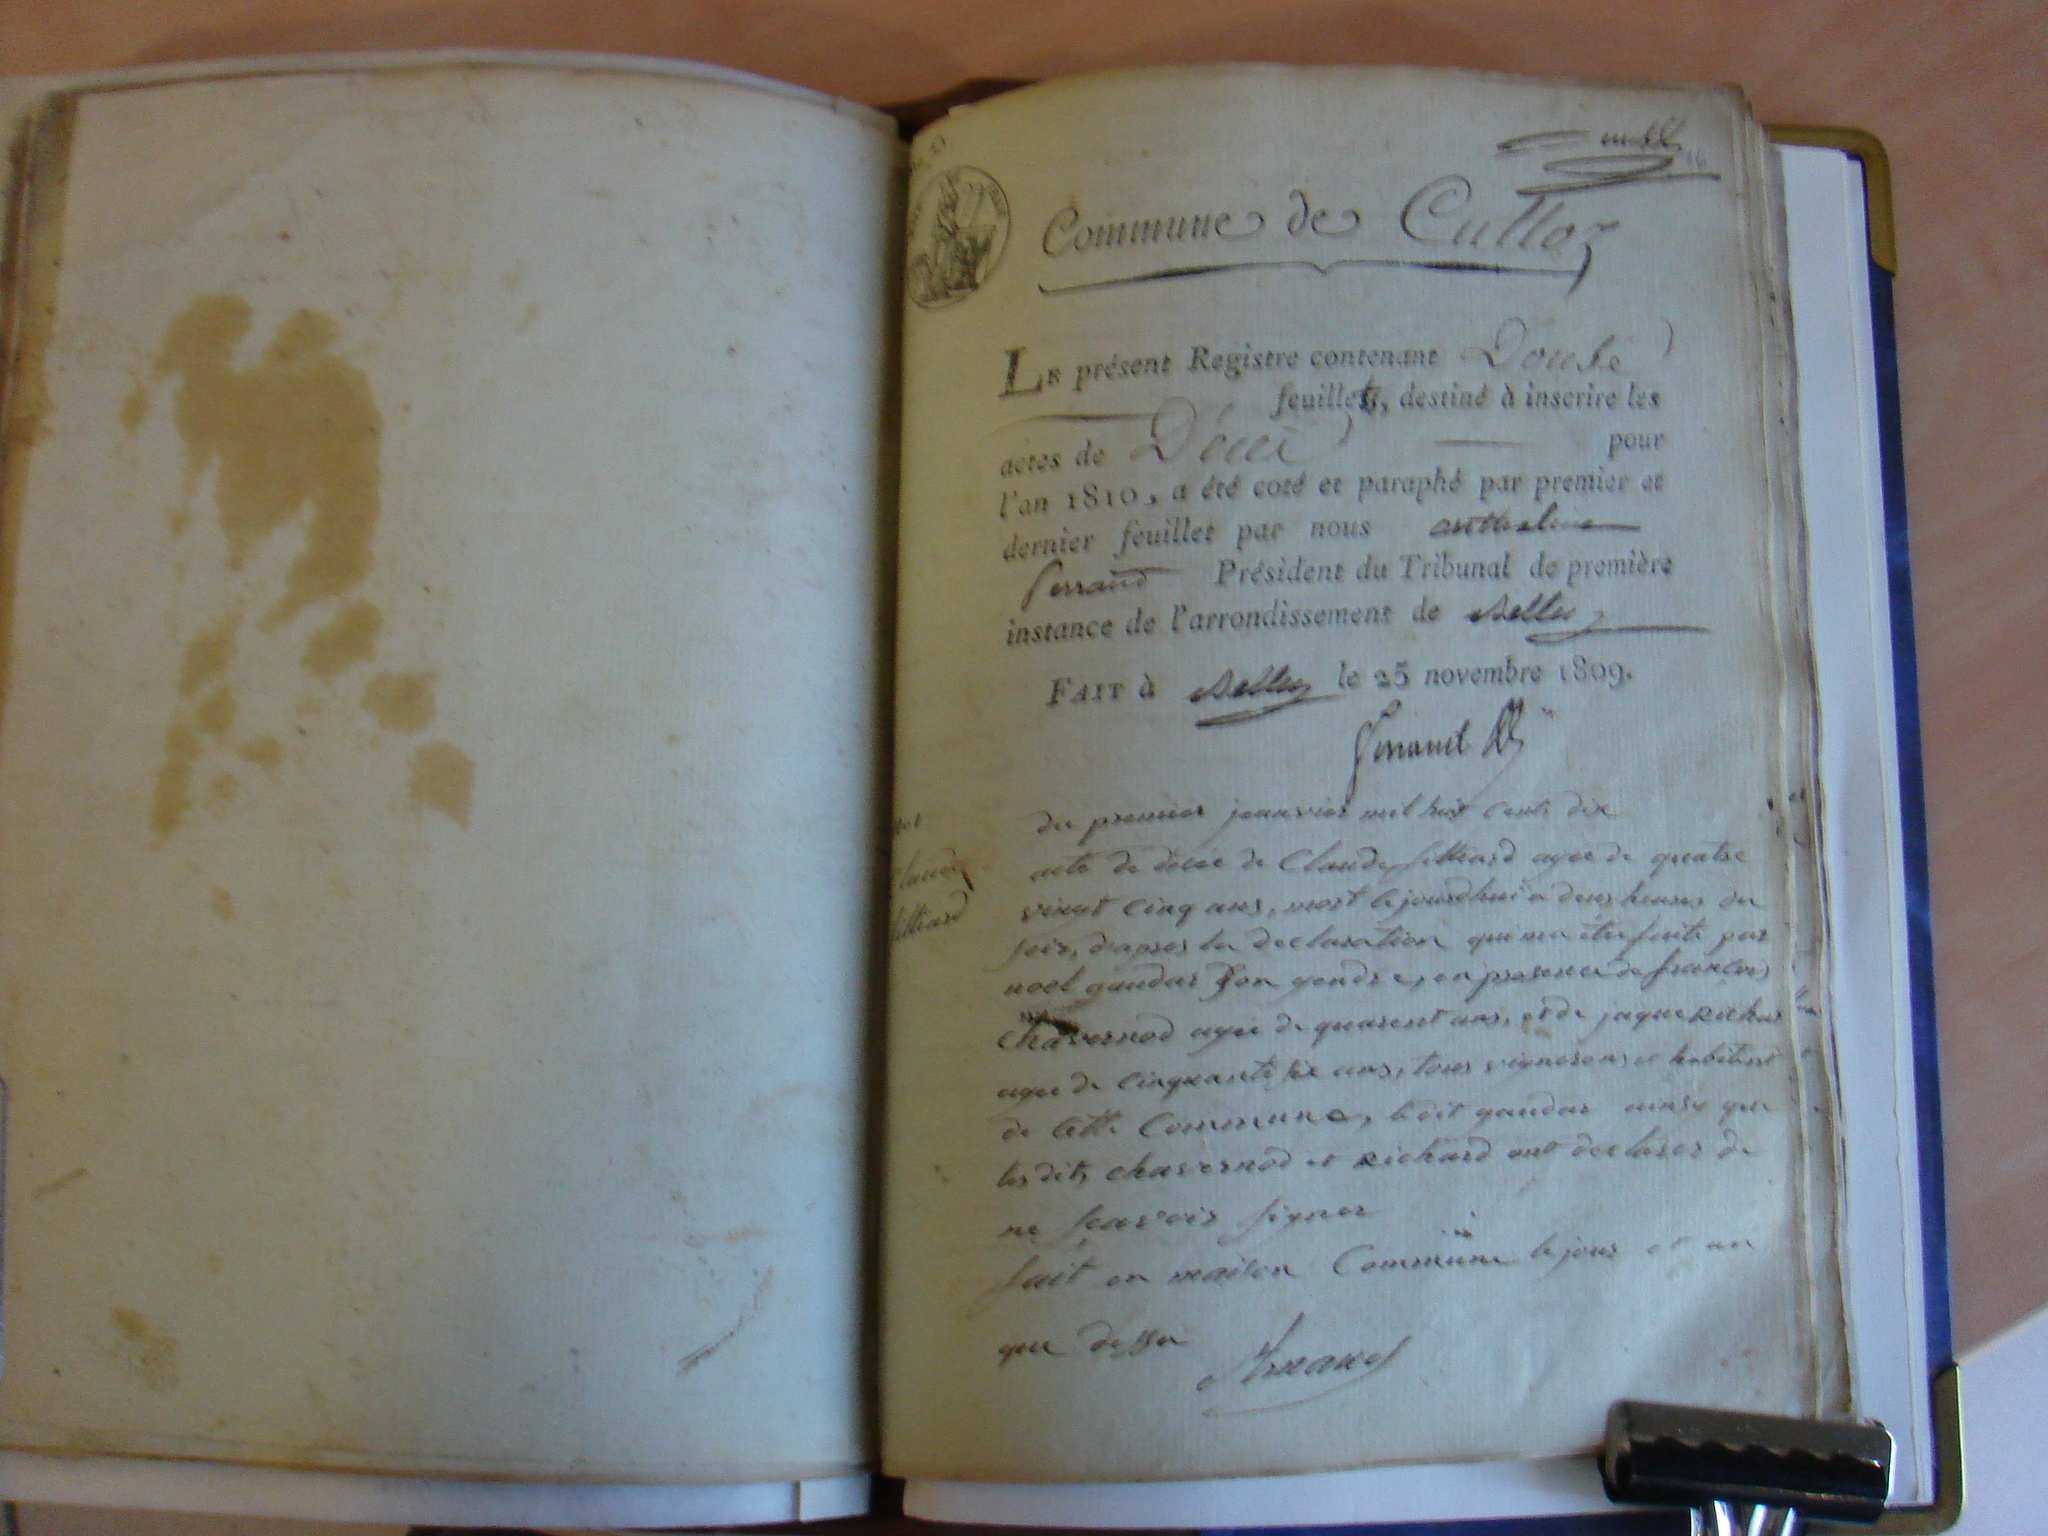 Commune de Culloz
Le présent Registre contenant Double
feuillets, destiné à inscrire les
actes de Décè pour
l'an 1810, a été coté et paraphé par premier et
dernier feuillet par nous anthelme
ferrand Président du Tribunal de première
instance de l'arrondissement de Belley
Fait à Belley le 25 novembre 1809.
du premier jeanvier mil huit cents dix
acte de décée de Claude filliard agée de quatre
vingt cinq ans, mort le jourdhui a deux heures du
soir, daprès la declaration qui ma étée faite par
noel gaudar son gendre, en presence de francois
chavernod agée de quarent ans, et de jaque Richar
agée de cinquante six ans, tous vignerons et habitent
de cette Commune, ledit gaudar ainsy que
les dits chavernod et Richard ont declarer de
ne scavoir signer
fait en maison Commune le jour et an
que dessu